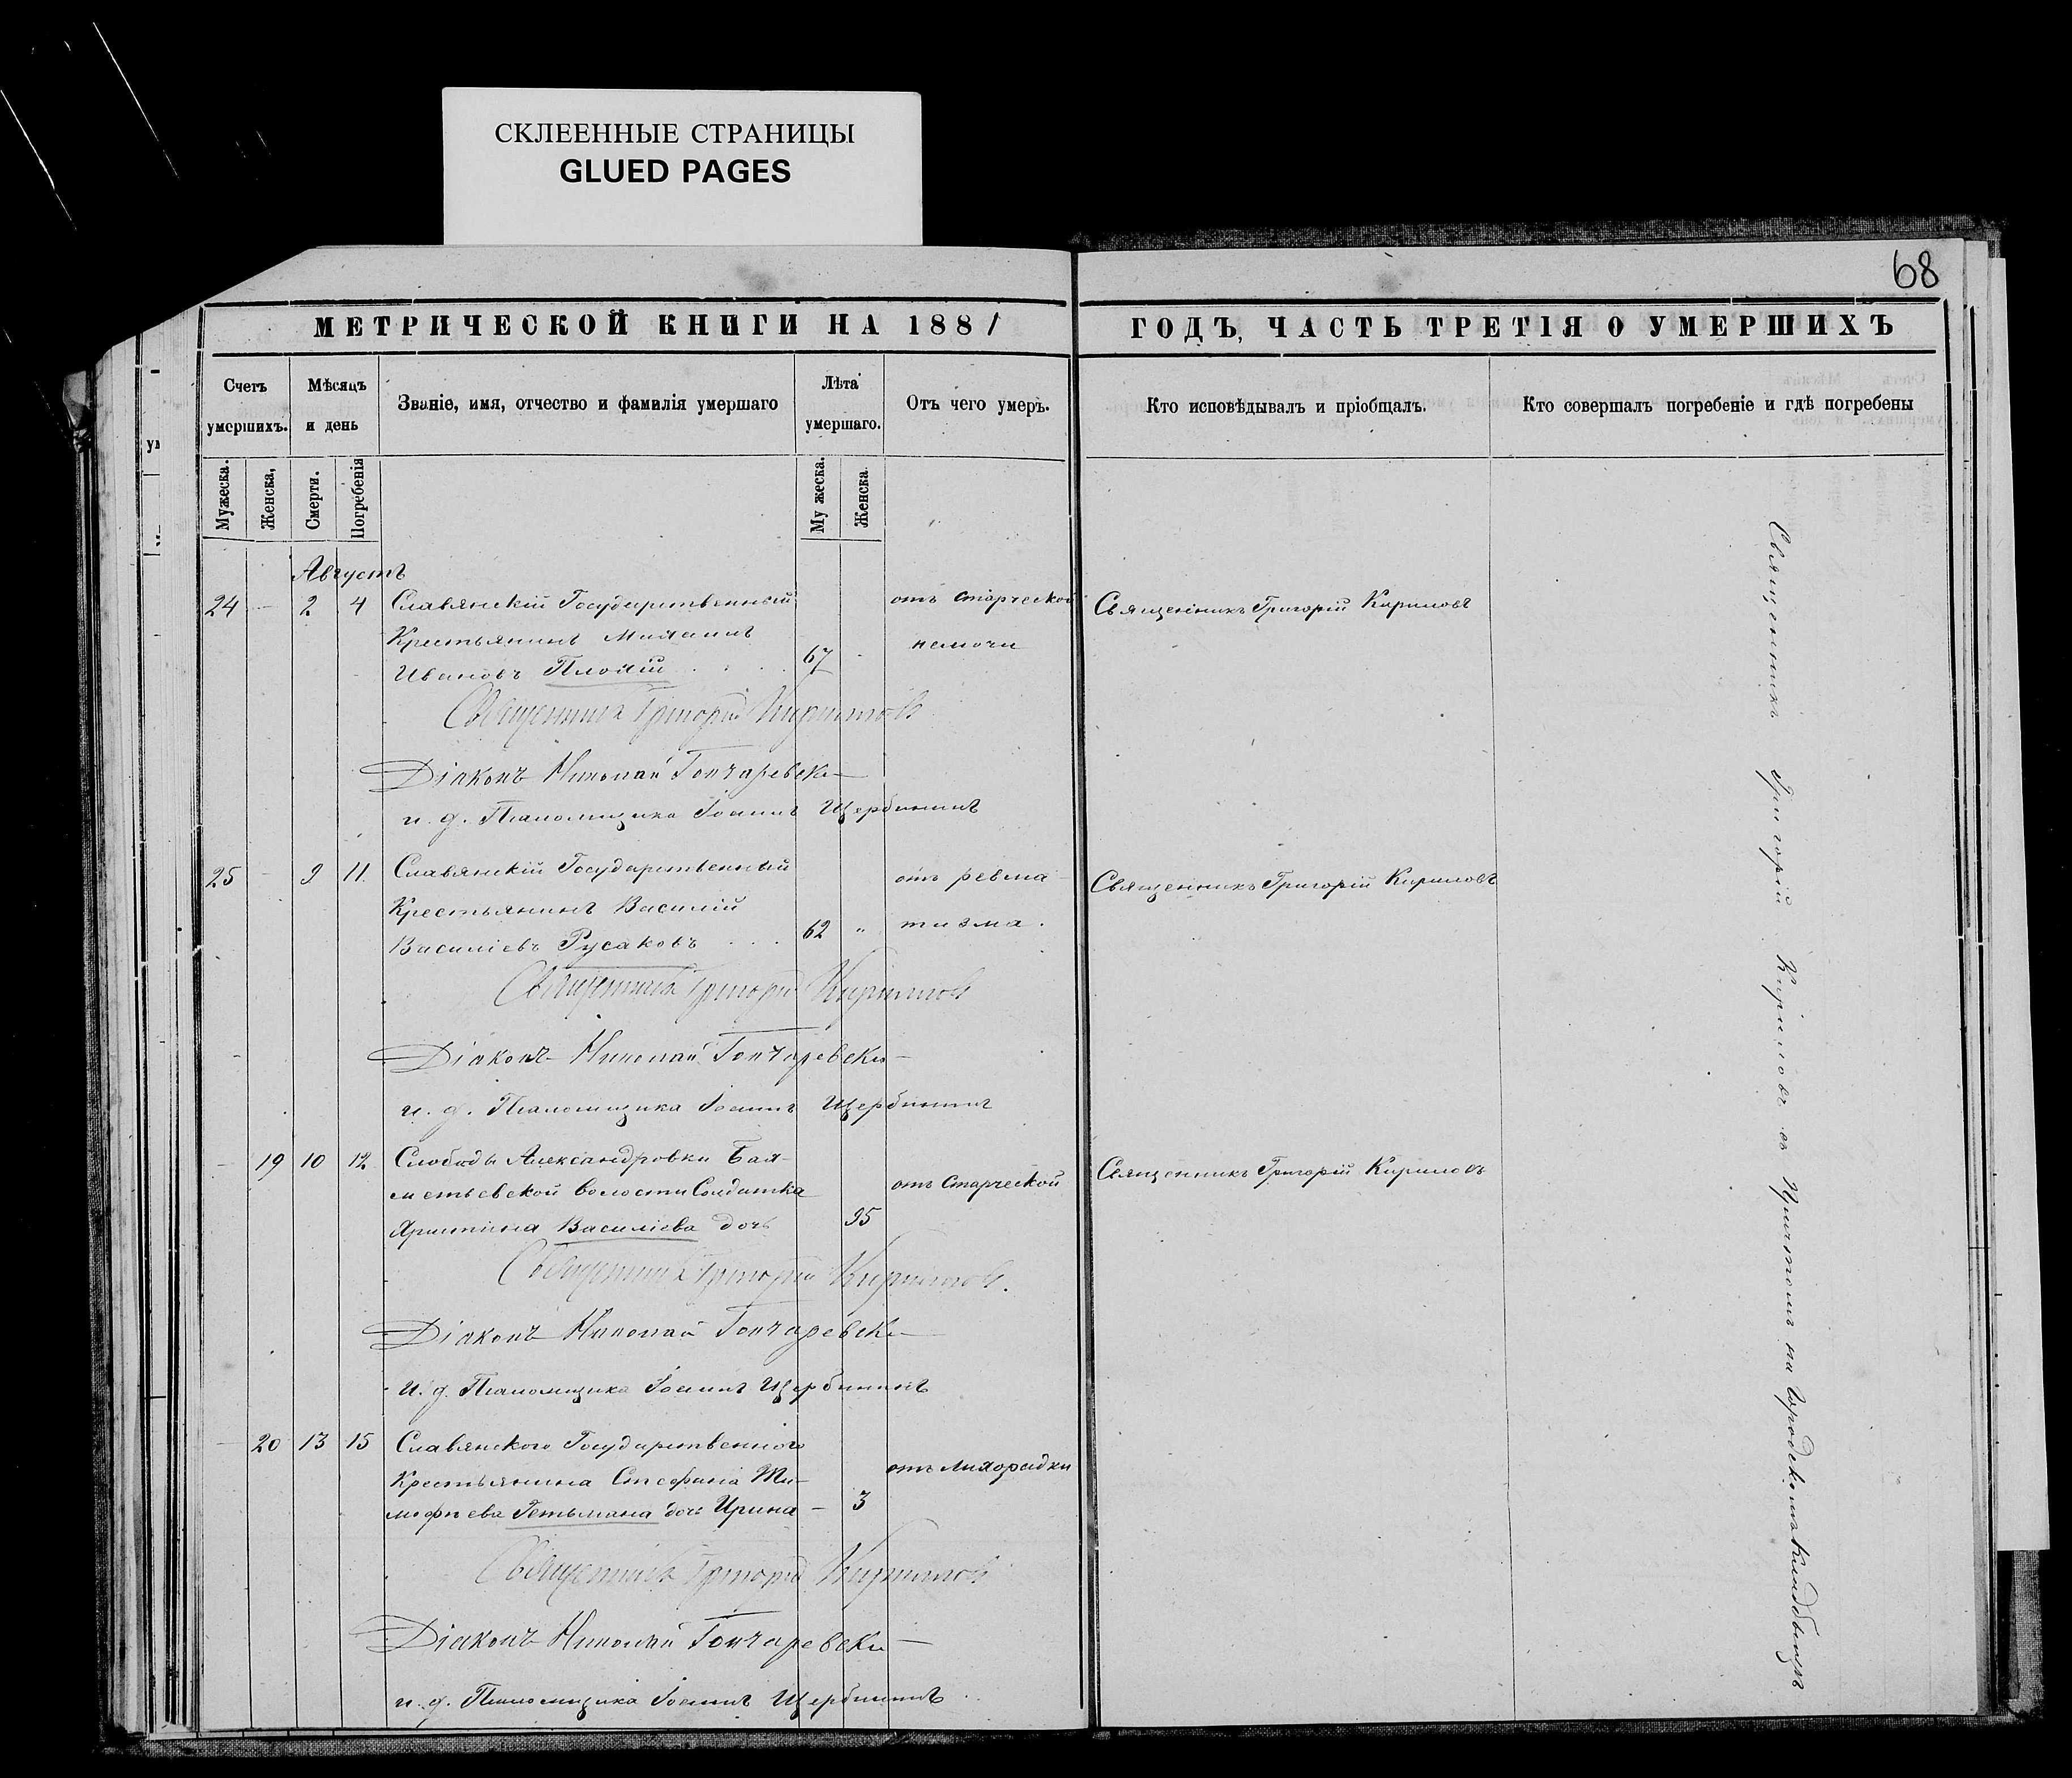 СКЛЕЕННЫЕ СТРАНИЦЫ
GLUED PAGES
68
МЕТРИЧЕСКОЙ КНИГИ НА 1881
ГОДЪ, ЧАСТЬ ТРЕТІЯ О УМЕРШИХЪ
Счетъ умершихъ.
Мѣсяцъ и день
Званіе, имя, отчество и фамилія умершаго
Лѣта умершаго.
Отъ чего умеръ.
Кто исповѣдывалъ и пріобщалъ.
Кто совершалъ погребеніе и гдѣ погребены
Мужеска.
Женска,
Смерти.
Погребенія
Му жеска.
Женска
Августъ
24 2 4 Славянскій Государственный отъ старческой Священникъ Григорій Кириловъ
Крестьянинъ Михаилъ немочи
Ивановъ Плохій 67
Священникъ Григорій Кириловъ
Діаконъ Николай Гончаревскі
и. д. Псаломщика Іоаннъ Щербининъ
25 9 11 Славянскій Государственный отъ ревма Священникъ Григорій Кириловъ
Крестьянинъ Василій тизма.
Василіевъ Русаковъ 62 "
Священникъ Григорій Кириловъ
Діаконъ Николай Гончаревскі
и. д. Псаломщика Іоаннъ Щербининъ
19 10 12 Слободы Александровки Бах- Священникъ Григорій Кириловъ
метьевской волости Солдатка отъ Старческой
Василіева дочь 95
Священникъ Григорій Кириловъ.
Діаконъ Николай Гончаревскі
И. д. Псаломщика Іоаннъ Щербининъ
20 13 15 Славянского Государственного
Крестьянина Стефана Ти- отъ лихорадки
мофѣева Гетьмана дочь Ирина 3
Священникъ Григорій Кириловъ
Діаконъ Николай Гончаревскі
и. д. Псаломщика Іоаннъ Щербининъ
Священникъ Григорій Кириловъ съ Причтомъ на Городскомъ кладбищѣ